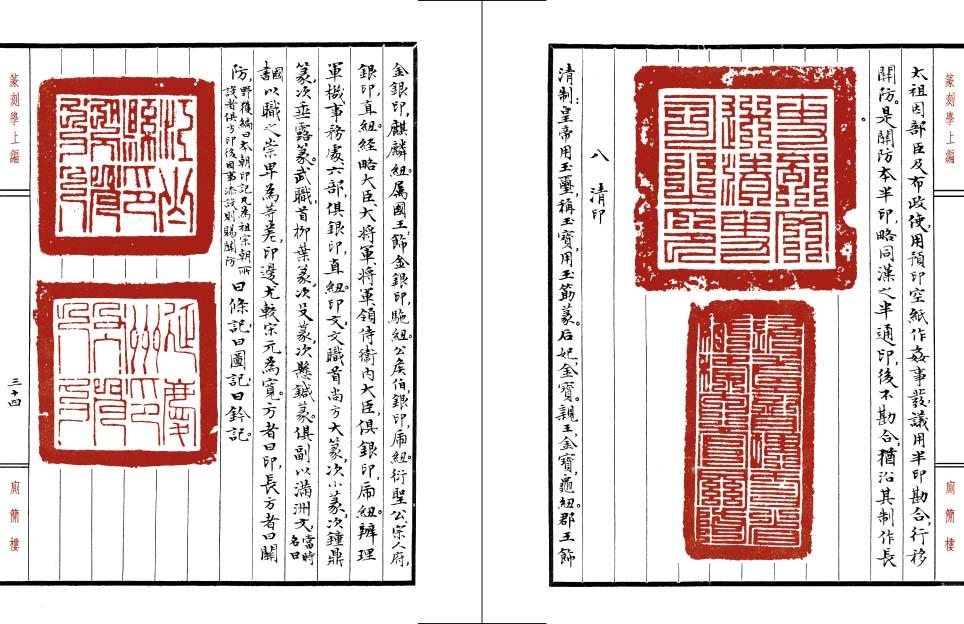 篆刻學上編
廁簡樓
太祖因部臣及布政使,用預印空紙作姦事發,議用半印勘合,行移
關防。是關防本半印,略同漢之半通印,後不勘合,猶沿其制作長
。
八 清印
清制:皇帝用玉璽,稱玉寶,用玉筯篆。后妃,金寶。親王,金寶,龜紐。郡王,飾
金銀印,麒麟紐。属國王,飾金銀印,駞紐。公、侯、伯,銀印,虎紐。衍聖公、宗人府,
銀印,直紐。經略大臣、大將軍、將軍、領侍衛內大臣,俱銀印,虎紐。辦理
軍機事務處、六部,俱銀印,直紐。印文,文職首尚方大篆,次小篆,次鐘鼎
篆,次垂露篆。武職首柳葉篆,次殳篆,次懸鍼篆。俱副以滿洲文,當時名曰
國書以職之崇卑為等差,印邊尤較宋元為寬。方者曰印,長方者曰關
防,野獲編曰本朝印記凡為祖宗朝所設者俱方印後因事添設則賜關防曰條記,曰圖記,曰鈐記。
篆刻學上編
三十四
廁簡樓